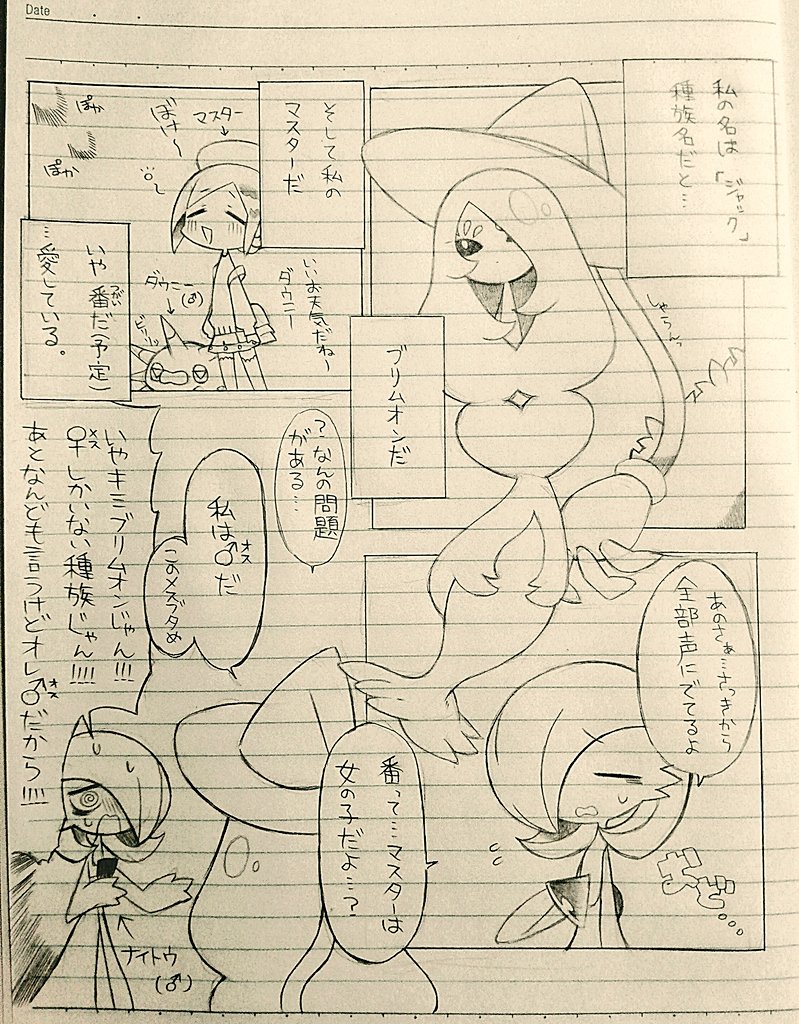 Date
私の名は「ジャック」
種族名だと…
ブリムオンだ
しゃらんっ
そして私の
マスターだ
マスター
ぽけ〜
ぽか
ぽか
いいお天気だね〜
ダウニー
ダウニー
(♂)
ビリリッ
いや番だ(予定)
つがい
…愛している。
あのさぁ…さっきから
全部声にでてるよ
まぞ…
番って…マスターは
女の子だよ…?
?なんの問題
がある…
私は♂だ
オス
このメスブタめ
いやキミブリムオンじゃん!!!
♀しかいない種族じゃん!!!!
メス
あとなんども言うけどオレ♂だから!!!!
オス
ナイトウ
(♂)